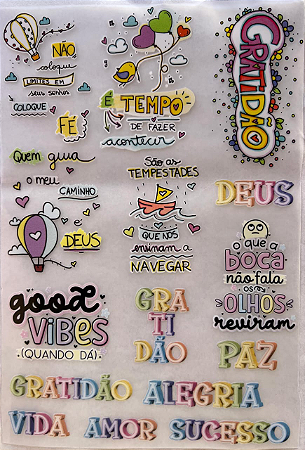 NÃO
coloque
LIMITES EM
seus sonhos
COLOQUE
FÉ
É TEMPO
DE FAZER
acontecer
GRATIDÃO
Quem guia
o meu
CAMINHO
é
DEUS
São as
TEMPESTADES
QUE NOS
ensinam a
NAVEGAR
DEUS
o que a
BOCA
não fala
OS
OLHOS
reviram
good
VIBES
(QUANDO DÁ)
GRA
TI
DÃO
PAZ
GRATIDÃO ALEGRIA
VIDA AMOR SUCESSO